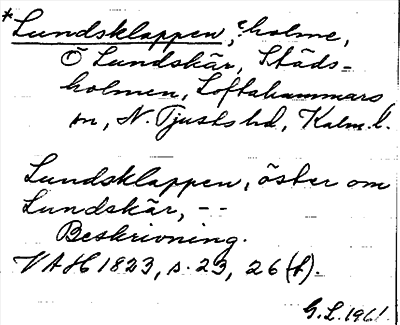 *Lundsklappen, holme,
Ö Lundskär, Städs-
holmen, Loftahammars
sn, N. Tjusts hd, Kalm. l.
Lundsklappen, öster om
Lundskär, --
Beskrivning.
VAH 1823, s. 23, 26 (f).
G.L. 1961.